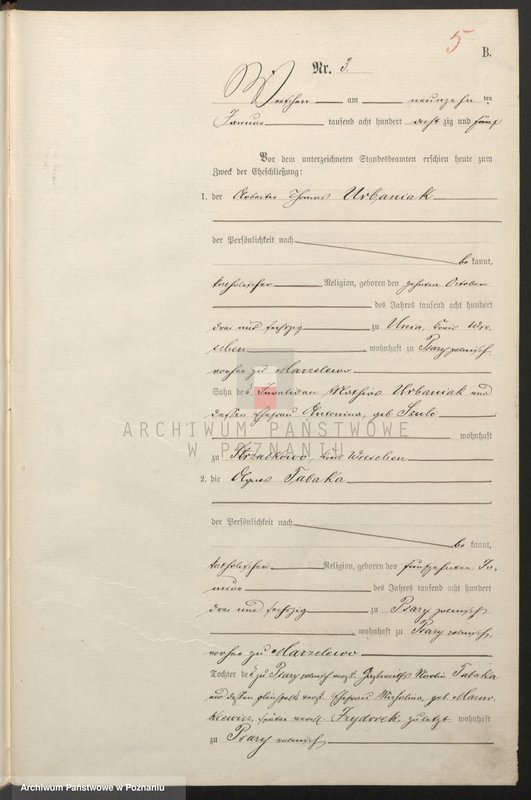 5
B.
Nr. 3.
Wreschen am neunzehn ten
Januar tausend acht hundert acht zig und fünf
Vor dem unterzeichneten Standesbeamten erschien heute zum
Zweck der Eheschließung:
1. der Arbeiter Thomas Urbaniak
der Persönlichkeit nach
be kannt,
katholischer Religion, geboren den zehnten October
des Jahres tausend acht hundert
drei und sechszig zu Unia, Kreis Wre-
schen, wohnhaft zu Psary polnisch
vorher zu Marzelewo
Sohn des Invaliden Mathias Urbaniak und
dessen Ehefrau Antonina, geb
wohnhaft
zu Strzalkowo, Kreis Wreschen
2. die Agnes Tabaka
der Persönlichkeit nach
be kannt,
katholischer Religion, geboren den fünfzehnten Ja-
nuar des Jahres tausend acht hundert
drei und sechszig zu Psary polnisch
, wohnhaft zu Psary polnisch,
vorher zu Marzelewo
Tochter des zu Psary polnisch verst. Martin Tabaka
und dessen gleichfalls verst. Ehefrau Michalina, geb Mazur-
kiewicz, später Frydorek, zuletzt wohnhaft
zu Psary polnisch
ARCHIWUM PAŃSTWOWE
W POZNANIU
Archiwum Państwowe w Poznaniu